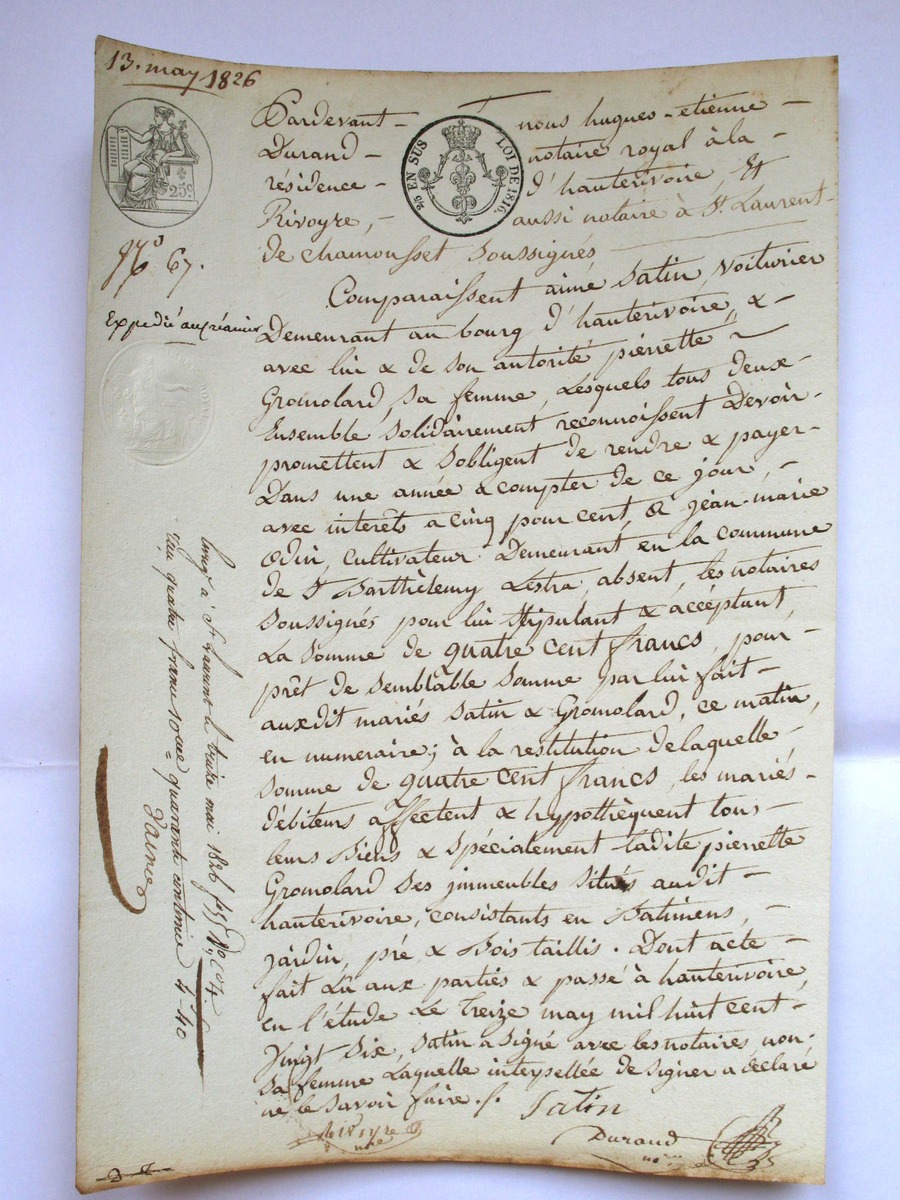 13. may 1826
25c.
25 EN SUS
LOI DE 1816.
N.º 67.
Expedié au créancier
Pardevant nous hugues-etienne
Durand notaire royal à la
résidence d'hauterivoire, Et
Rivoyre, aussi notaire à St. Laurent
de chamousset soussignés
Comparaissent aimé Satin, Voiturier
Demeurant au bourg d'hauterivoire, &
avec lui & de son autorité pierrette
Gromolard, sa femme, Lesquels tous deux
Ensemble solidairement reconnoissent Devoir
promettent & sobligent de rendre & payer
Dans une année a compter de ce jour,
avec interêts a cinq pour cent, à jean-marie
odin, cultivateur Demeurant en la commune
de St. Barthèlemy Lestra, absent, les notaires
soussignés pour lui stipulant & accèptant,
La somme de quatre cent francs, pour
prêt de semblable somme par lui fait
auxdit mariés Satin & Gromolard, ce matin,
en numeraire; à la restitution de laquelle
somme de quatre cent francs, les mariés
débiteurs affectent & hypothèquent tous
leurs Biens & spécialement ladite pierrette
Gromolard ses immeubles situés audit
hauterivoire, consistants en Batimens,
jardin, pré & Bois taillis. Dont acte
fait Lu aux parties & passé à hauterivoire,
en l'étude Le Treize may mil huit cent
vingt six, Satin a signé avec les notaires non
sa femme Laquelle interpellée de signer a déclaré
ne le savoir faire ./.
Satin
Rivoyre
nre
Durand
no.re
à St. Laurent le treize mai 1826
quatre francs 10me quarante centimes 4-40